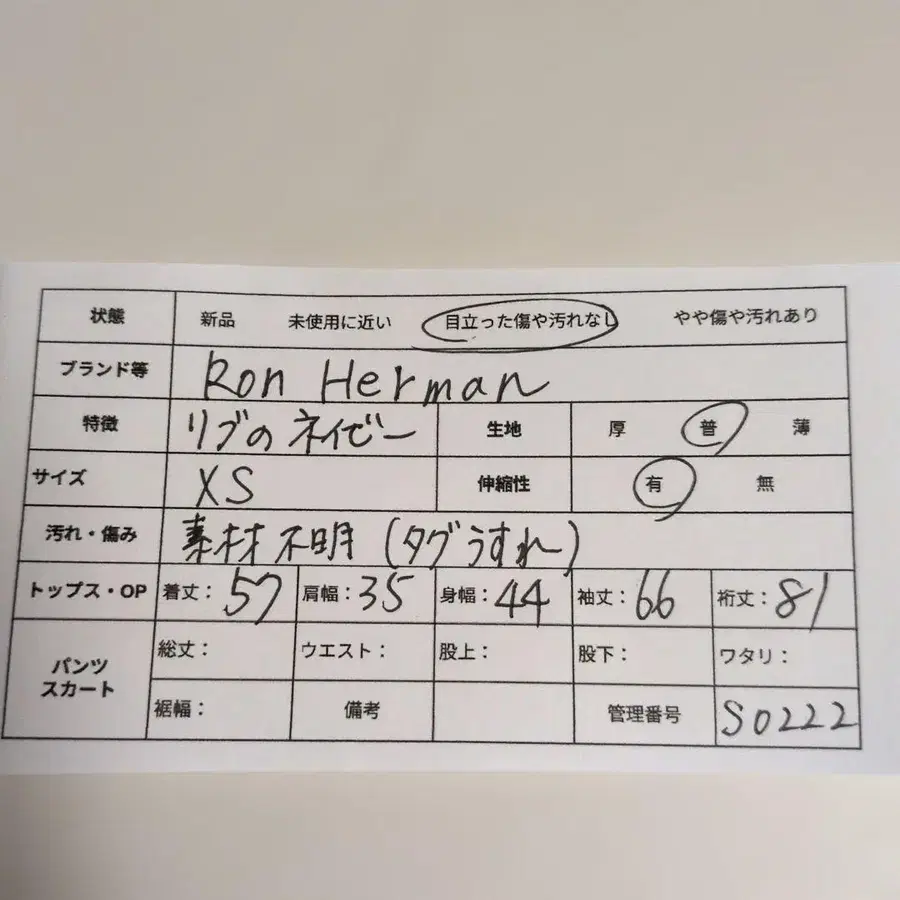 状態 新品 未使用に近い 目立った傷や汚れなし やや傷や汚れあり
ブランド等 Ron Herman
特徴 リブのネイビー 生地 厚 普 薄
サイズ XS 伸縮性 有 無
汚れ・傷み 素材不明(タグうすれ)
トップス・OP 着丈:57 肩幅:35 身幅:44 袖丈:66 裄丈:81
パンツ
スカート
総丈: ウエスト: 股上: 股下: ワタリ:
裾幅: 備考 管理番号 S0222